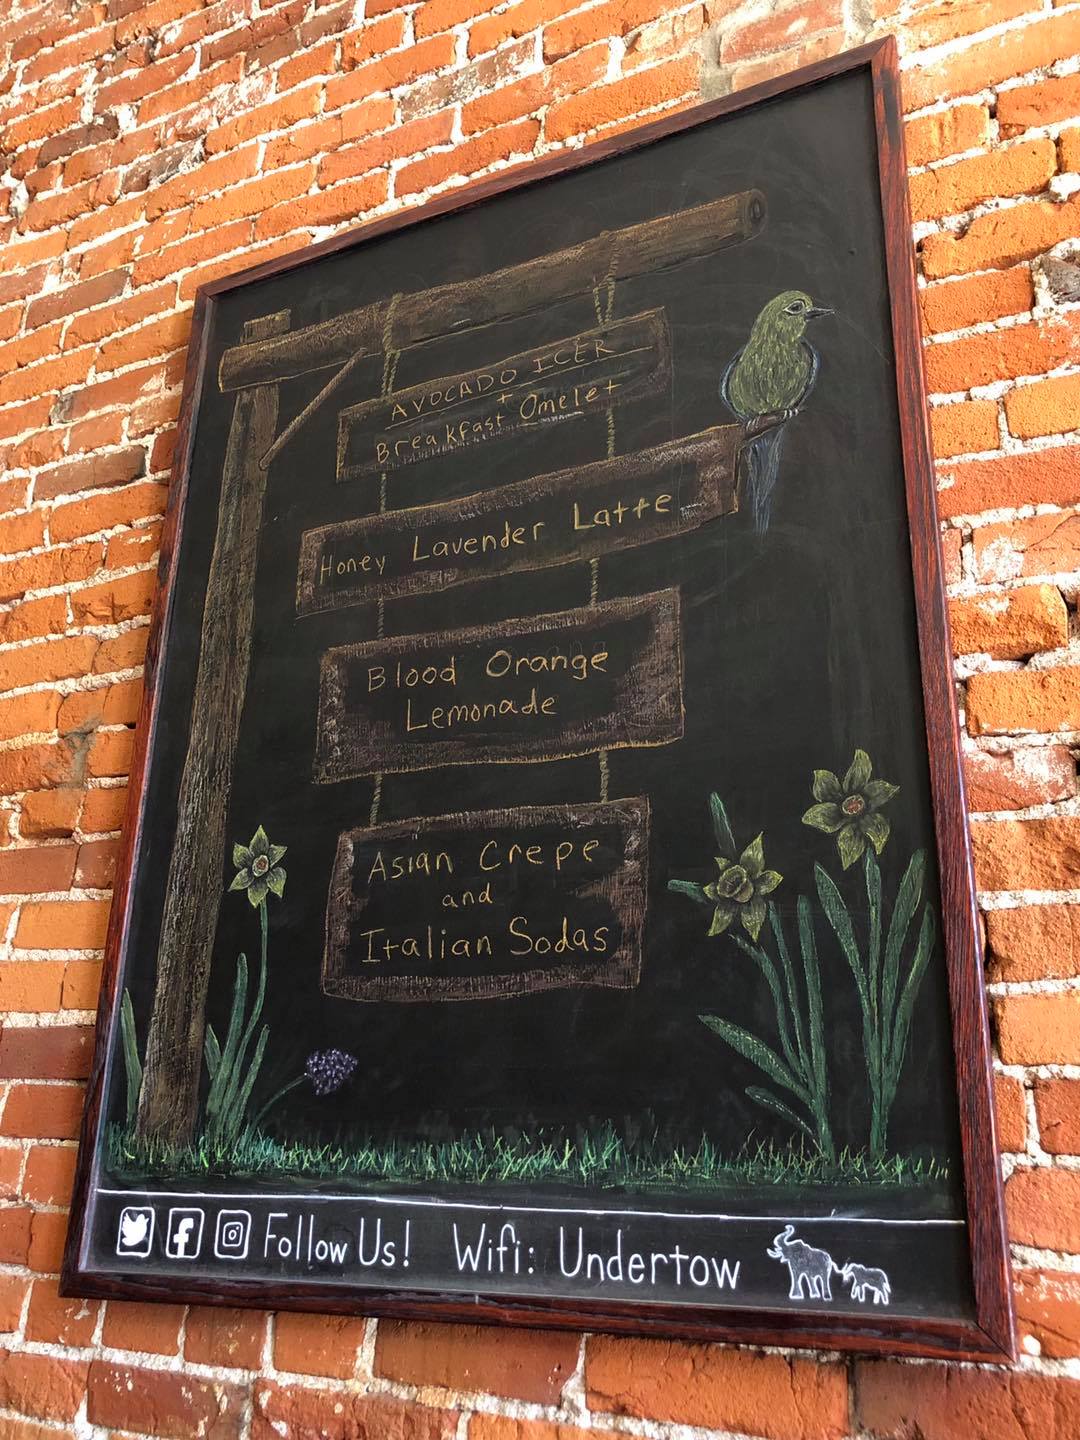 AVOCADO ICER
+
Breakfast Omelet
Honey Lavender Latte
Blood Orange
Lemonade
Asian Crepe
and
Italian Sodas
Follow Us! Wifi: Undertow